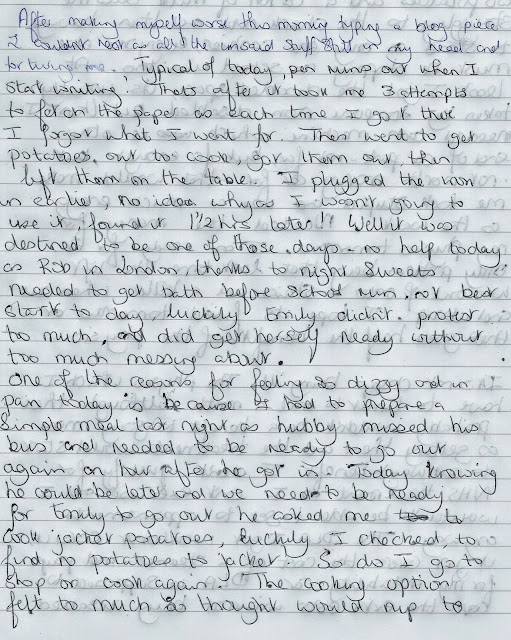 After making myself worse this morning typing a blog piece
I couldn't rest as all the unsaid stuff still in my head and
torturing me. Typical of today, pen runs out when I
start writing. Thats after it took me 3 attempts
to fetch the paper as each time I got there
I forgot what I went for. Then went to get
potatoes out to cook, got them out then
left them on the table. I plugged the iron
in earlier, no idea why as I wasn't going to
use it, found it 1½ hrs later!! Well it was
destined to be one of those days. no help today
as Rob in London, thanks to night sweats
needed to get bath before school run, not best
start to day luckily Emily didn't protest
to much, and did get herself ready without
too much messing about.
One of the reasons for feeling so dizzy and in
pain today is because I had to prepare a
simple meal last night as hubby missed his
bus and needed to be ready to go out
again an hur after he got in. Today knowing
he could be late and we need to be ready
for Emily to go out he asked me to
cook jacket potatoes, luckily I checked, to
find no potatoes to jacket. So do I go to
shop or cook again. The cooking option
felt to much so thought would nip to